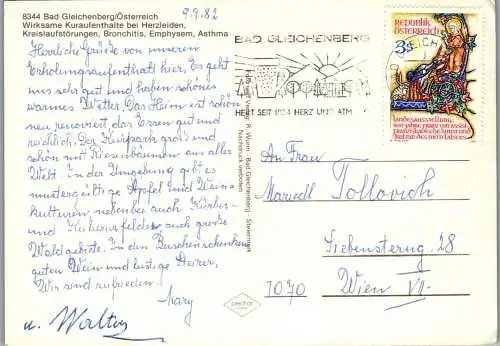 8344 Bad Gleichenberg/Österreich
Wirksame Kuraufenthalte bei Herzleiden,
Kreislaufstörungen, Bronchitis, Emphysem, Asthma
9.9.82
Herzliche Grüße von unserem
Erholungsaufenthalt hier. Es geht
uns sehr gut und haben schönes
warmes Wetter. Das Heim ist schön
neu renoviert das Essen gut und
reichlich. Der Kurpark groß und
schön mit Riesenbäumen aus aller
Welt. In der Umgebung gibt es
mustergültige Äpfel und Wein-
kulturen, nebenbei auch Kürbis-
und Kukuruzfelder auch große
Waldgebiete. In den Buschenschenken
guten Wein und lustige Steirer,
Wir sind zufrieden!
Mary
u. Walter
BAD GLEICHENBERG
HEILT SEIT 1834 HERZ UND ATM
REPUBLIK
ÖSTERREICH
3S
Landesausstellung
800 Jahre Franz von Assisi
franziskanische Kunst und
Kultur des Mittelalters
Wurm · Bad Gleichenberg · Steiermark
Nachdruck verboten
An Frau
Tollovich
Siebensterng. 28
1070 Wien